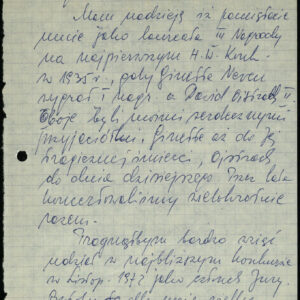 Mam nadzieję iż pamiętacie
mnie jako laureata III Nagrody
na najpierwszym H.W. Konk.
w 1935 r, gdy Ginette Neveu
wygrał I nagr. a David Ojstrach II
Oboje byli moimi serdecznymi
przyjaciółmi, Ginette aż do Jej
tragicznej śmierci, Ojstrach
do dnia dzisiejszego. Przez lata
wielokrotnie
razem.
Pragnąłbym bardzo wziąć
udział w najbliższym konkursie
w Listop. 1972 jako członek Jury.